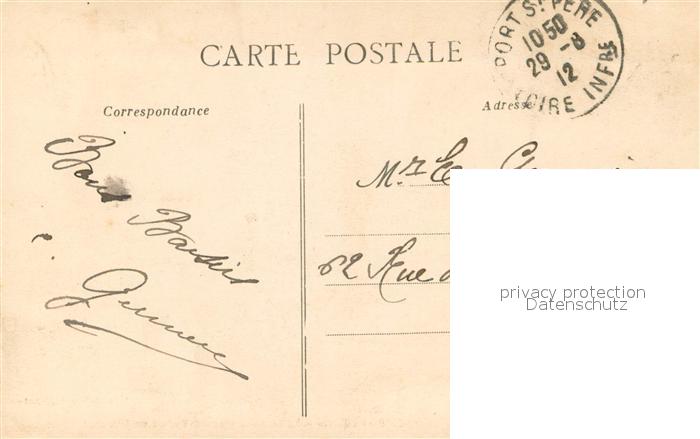 CARTE POSTALE
PORT ST PERE
10 50
29 - 8
12
LOIRE INFRE
Correspondance
Adresse
Bons Baisers
Mr E.
62 Rue
privacy protection
Datenschutz